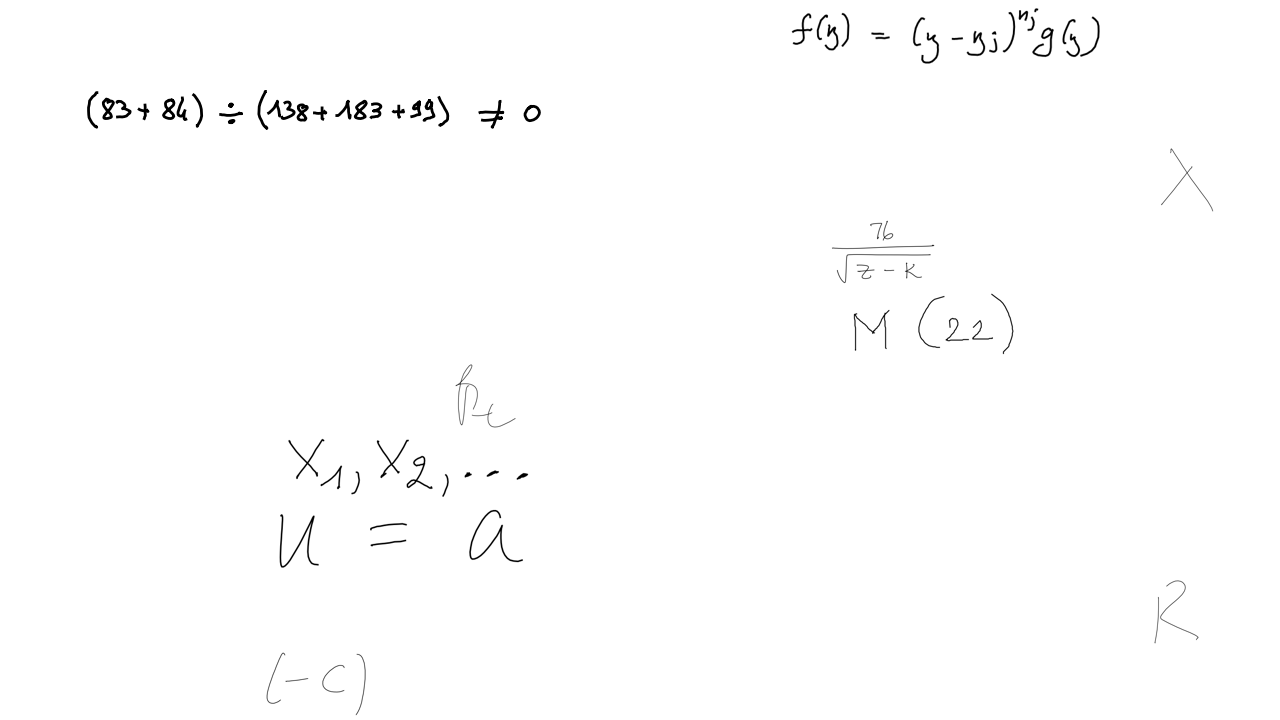 f(y) = (y - y_j)^{n_j} g(y)
(83 + 84) ÷ (138 + 183 + 99) ≠ 0
λ
\frac{76}{\sqrt{z - k}}
M (22)
x_1, x_2, ...
u = a
R
(-c)